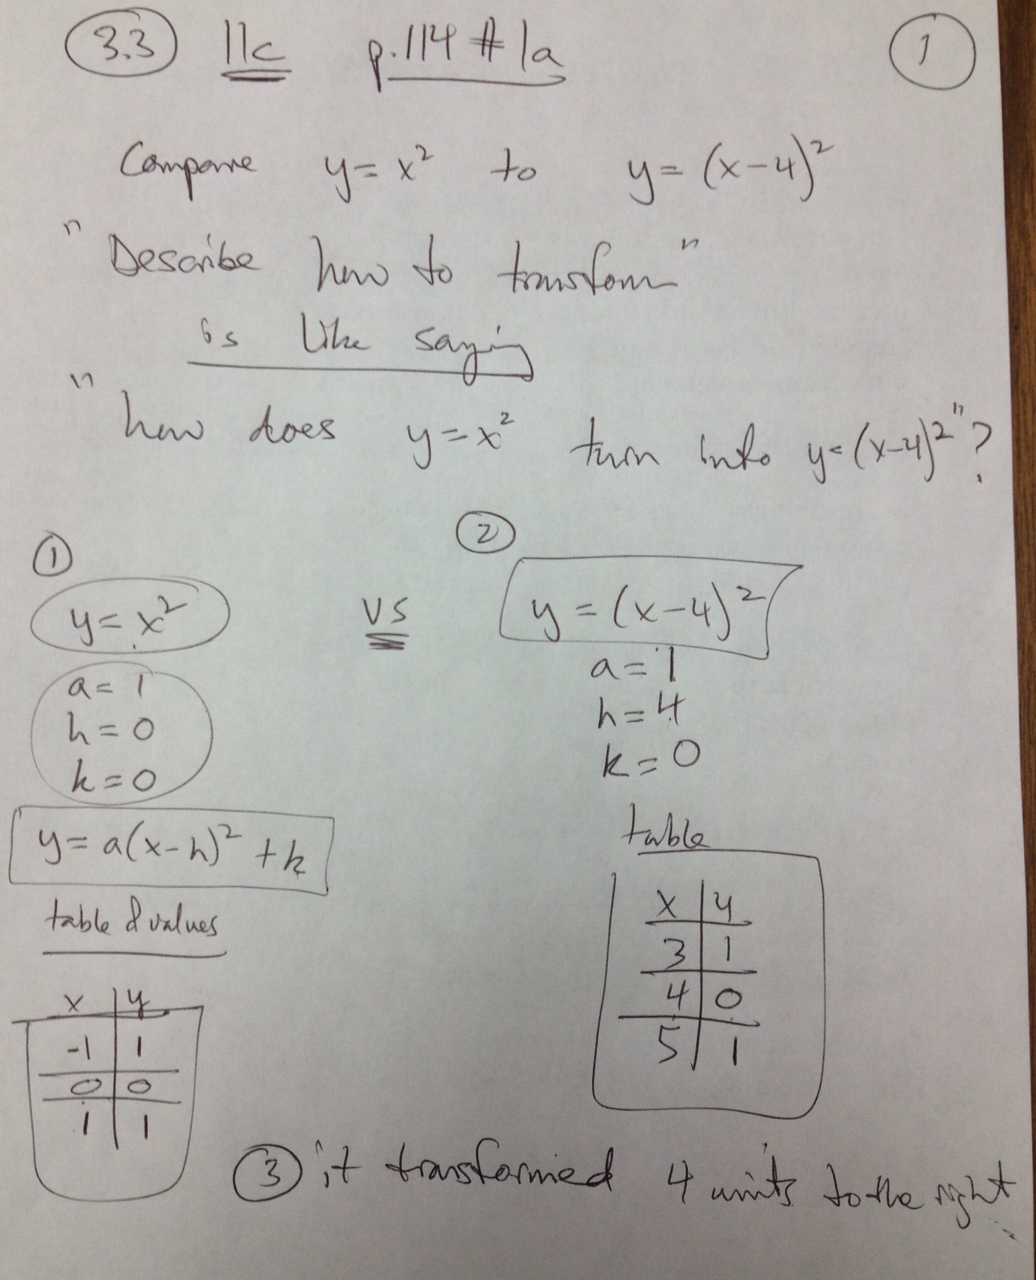 3.3 11c p.114 # 1a 1
Compare y = x² to y = (x-4)²
"Describe how to transform"
is like saying
"how does y = x² turn into y = (x-4)²"?
1 2
y = x² vs y = (x-4)²
a = 1
h = 0
k = 0
y = a(x-h)² + k
table of values
x y
-1 1
0 0
1 1
a = 1
h = 4
k = 0
table
x y
3 1
4 0
5 1
3 it transformed 4 units to the right